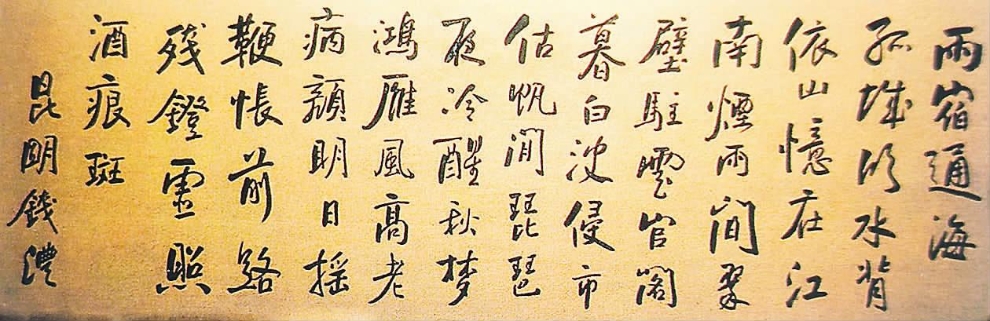 雨宿通海
孤城臨水背
依山憶在江
南煙雨間翠
壁駐雲官閣
暮白波侵市
估帆閒琵琶
夜冷醒秋梦
鴻雁風高老
病顏明日摇
鞭悵前路
残鐙虛照
酒痕斑
昆明錢澧